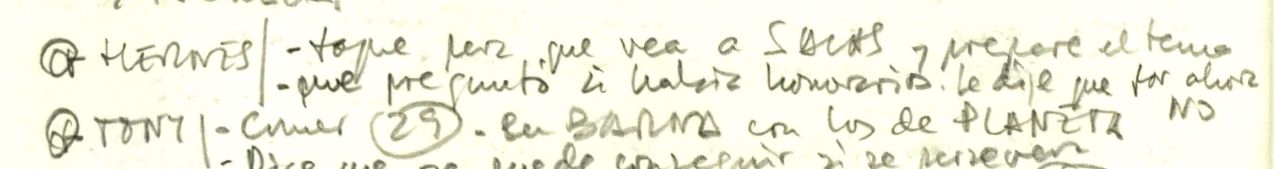 HERMES / - toque para que vea a SALAS y prepare el tema
- que preguntó si había honorarios. Le dije que por ahora NO
TONY / - Comer 29 - en BARNA con los de PLANETA
- Dice que se puede conseguir si se